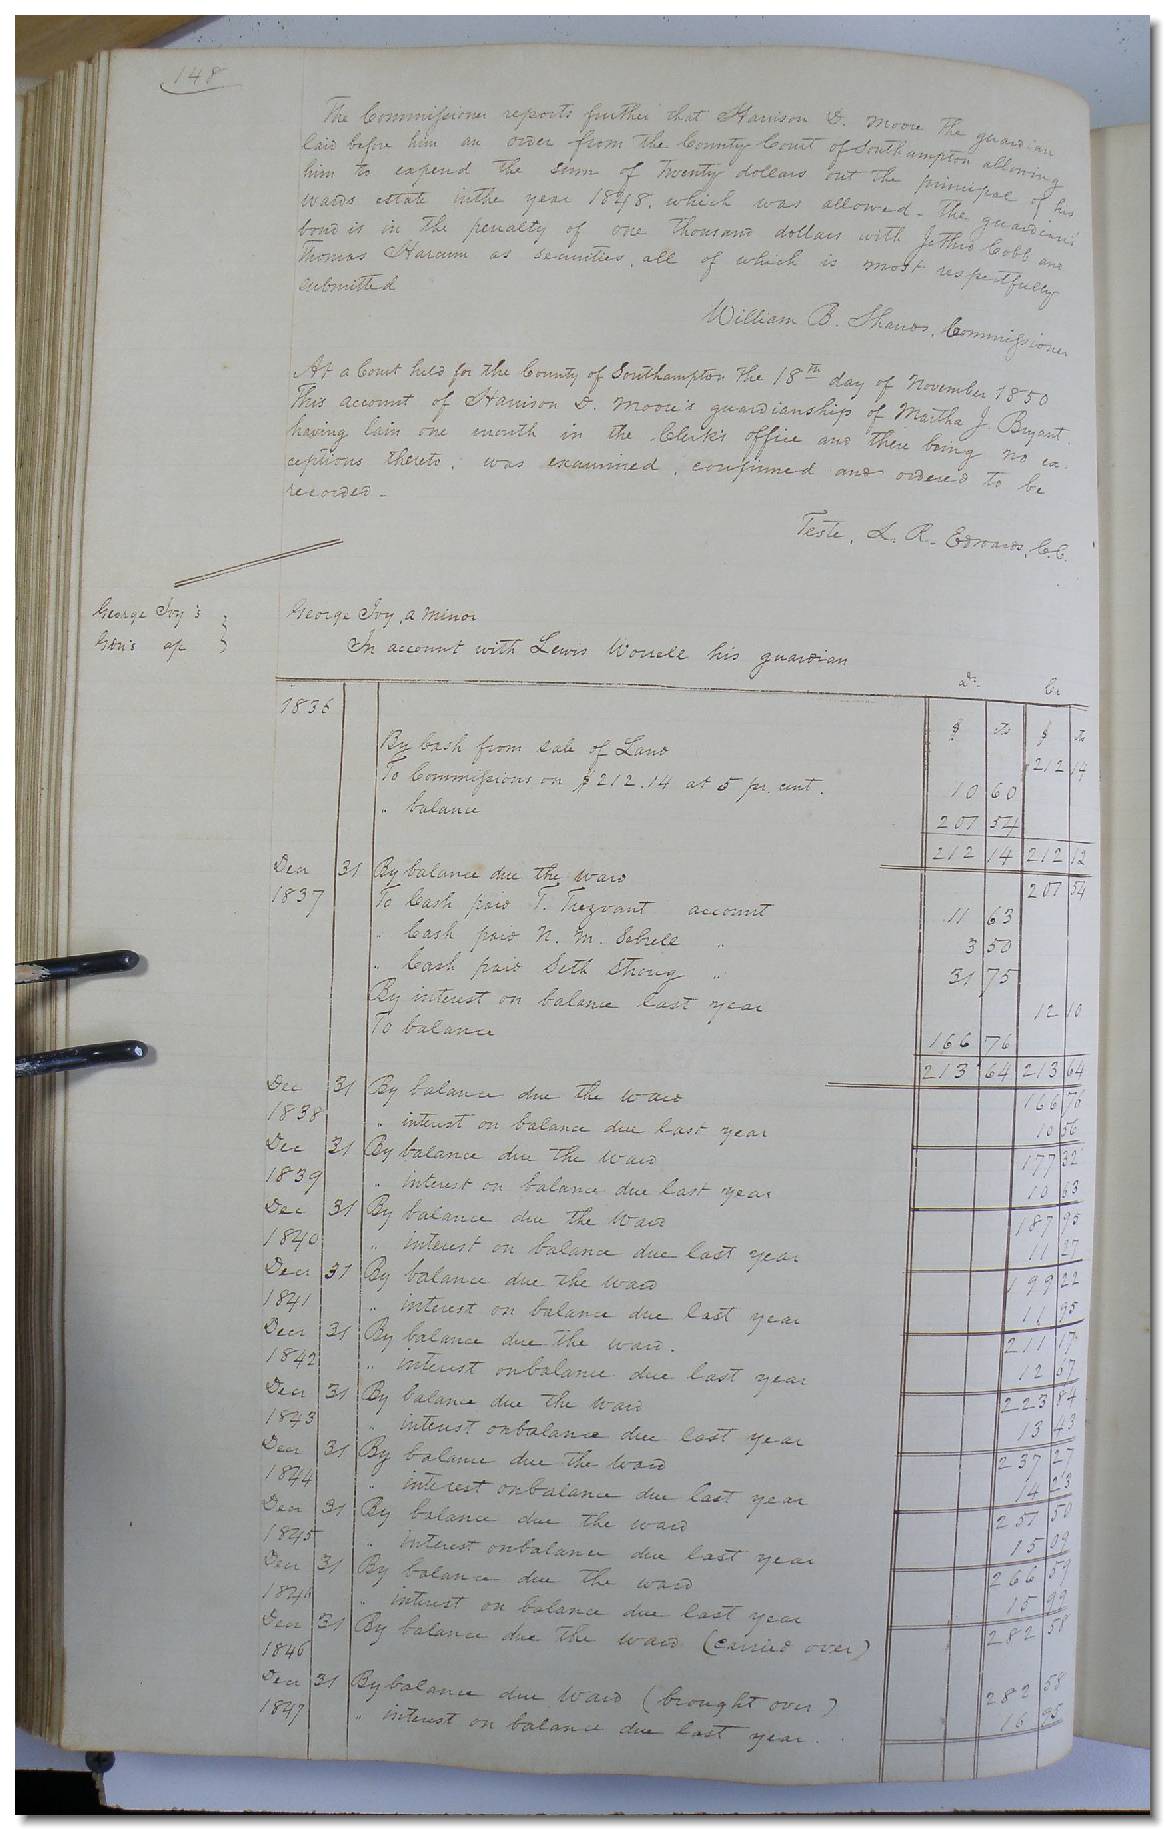 148
The Commissioner reports further that Harrison D. Moore the guardian
laid before him an order from the County Court of Southampton allowing
him to expend the sum of twenty dollars out the principal of his
wards estate in the year 1848. which was allowed - The guardian's
bond is in the penalty of one thousand dollars with Jethro Cobb and
Thomas Harcum as securities, all of which is most respectfully
submitted
William B. Shands, Commissioner
At a Court held for the County of Southampton the 18th day of November 1850
This account of Harrison D. Moore's guardianship of Martha J. Bryant
having lain one month in the Clerk's office and there being no ex-
ceptions thereto, was examined, confirmed and ordered to be
recorded -
Teste, L. R. Edwards, C.C.
George Ivy's
Gdn's a/c
George Ivy, a minor
In account with Lewis Worrell his guardian
Dr. Cr
1836 $ cts $ cts
By Cash from sale of Land 212 14
To Commissions on $212.14 at 5 pr. cent. 10 60
" balance 201 54
212 14 212 12
Decr 31 By balance due the ward 201 54
1837 To Cash paid T. Trezvant account 11 63
" Cash paid N. M. Sebrell " 3 50
" Cash paid Seth Strong " 31 75
By interest on balance last year 12 10
To balance 166 76
213 64 213 64
Dec 31 By balance due the ward 166 76
1838 " interest on balance due last year 10 56
Dec 31 By balance due the ward 177 32
1839 " interest on balance due last year 10 63
Dec 31 By balance due the Ward 187 95
1840 " interest on balance due last year 11 27
Decr 31 By balance due the ward 199 22
1841 " interest on balance due last year 11 95
Decr 31 By balance due the ward. 211 17
1842 " interest on balance due last year 12 67
Decr 31 By balance due the ward 223 84
1843 " interest on balance due last year 13 43
Decr 31 By balance due the ward 237 27
1844 " interest on balance due last year 14 23
Decr 31 By balance due the ward 251 50
1845 " interest on balance due last year 15 09
Decr 31 By balance due the ward 266 59
1846 " interest on balance due last year 15 99
Decr 31 By balance due the ward (carried over) 282 58
1846
Decr 31 By balance due ward (brought over) 282 58
1847 " interest on balance due last year. 16 95